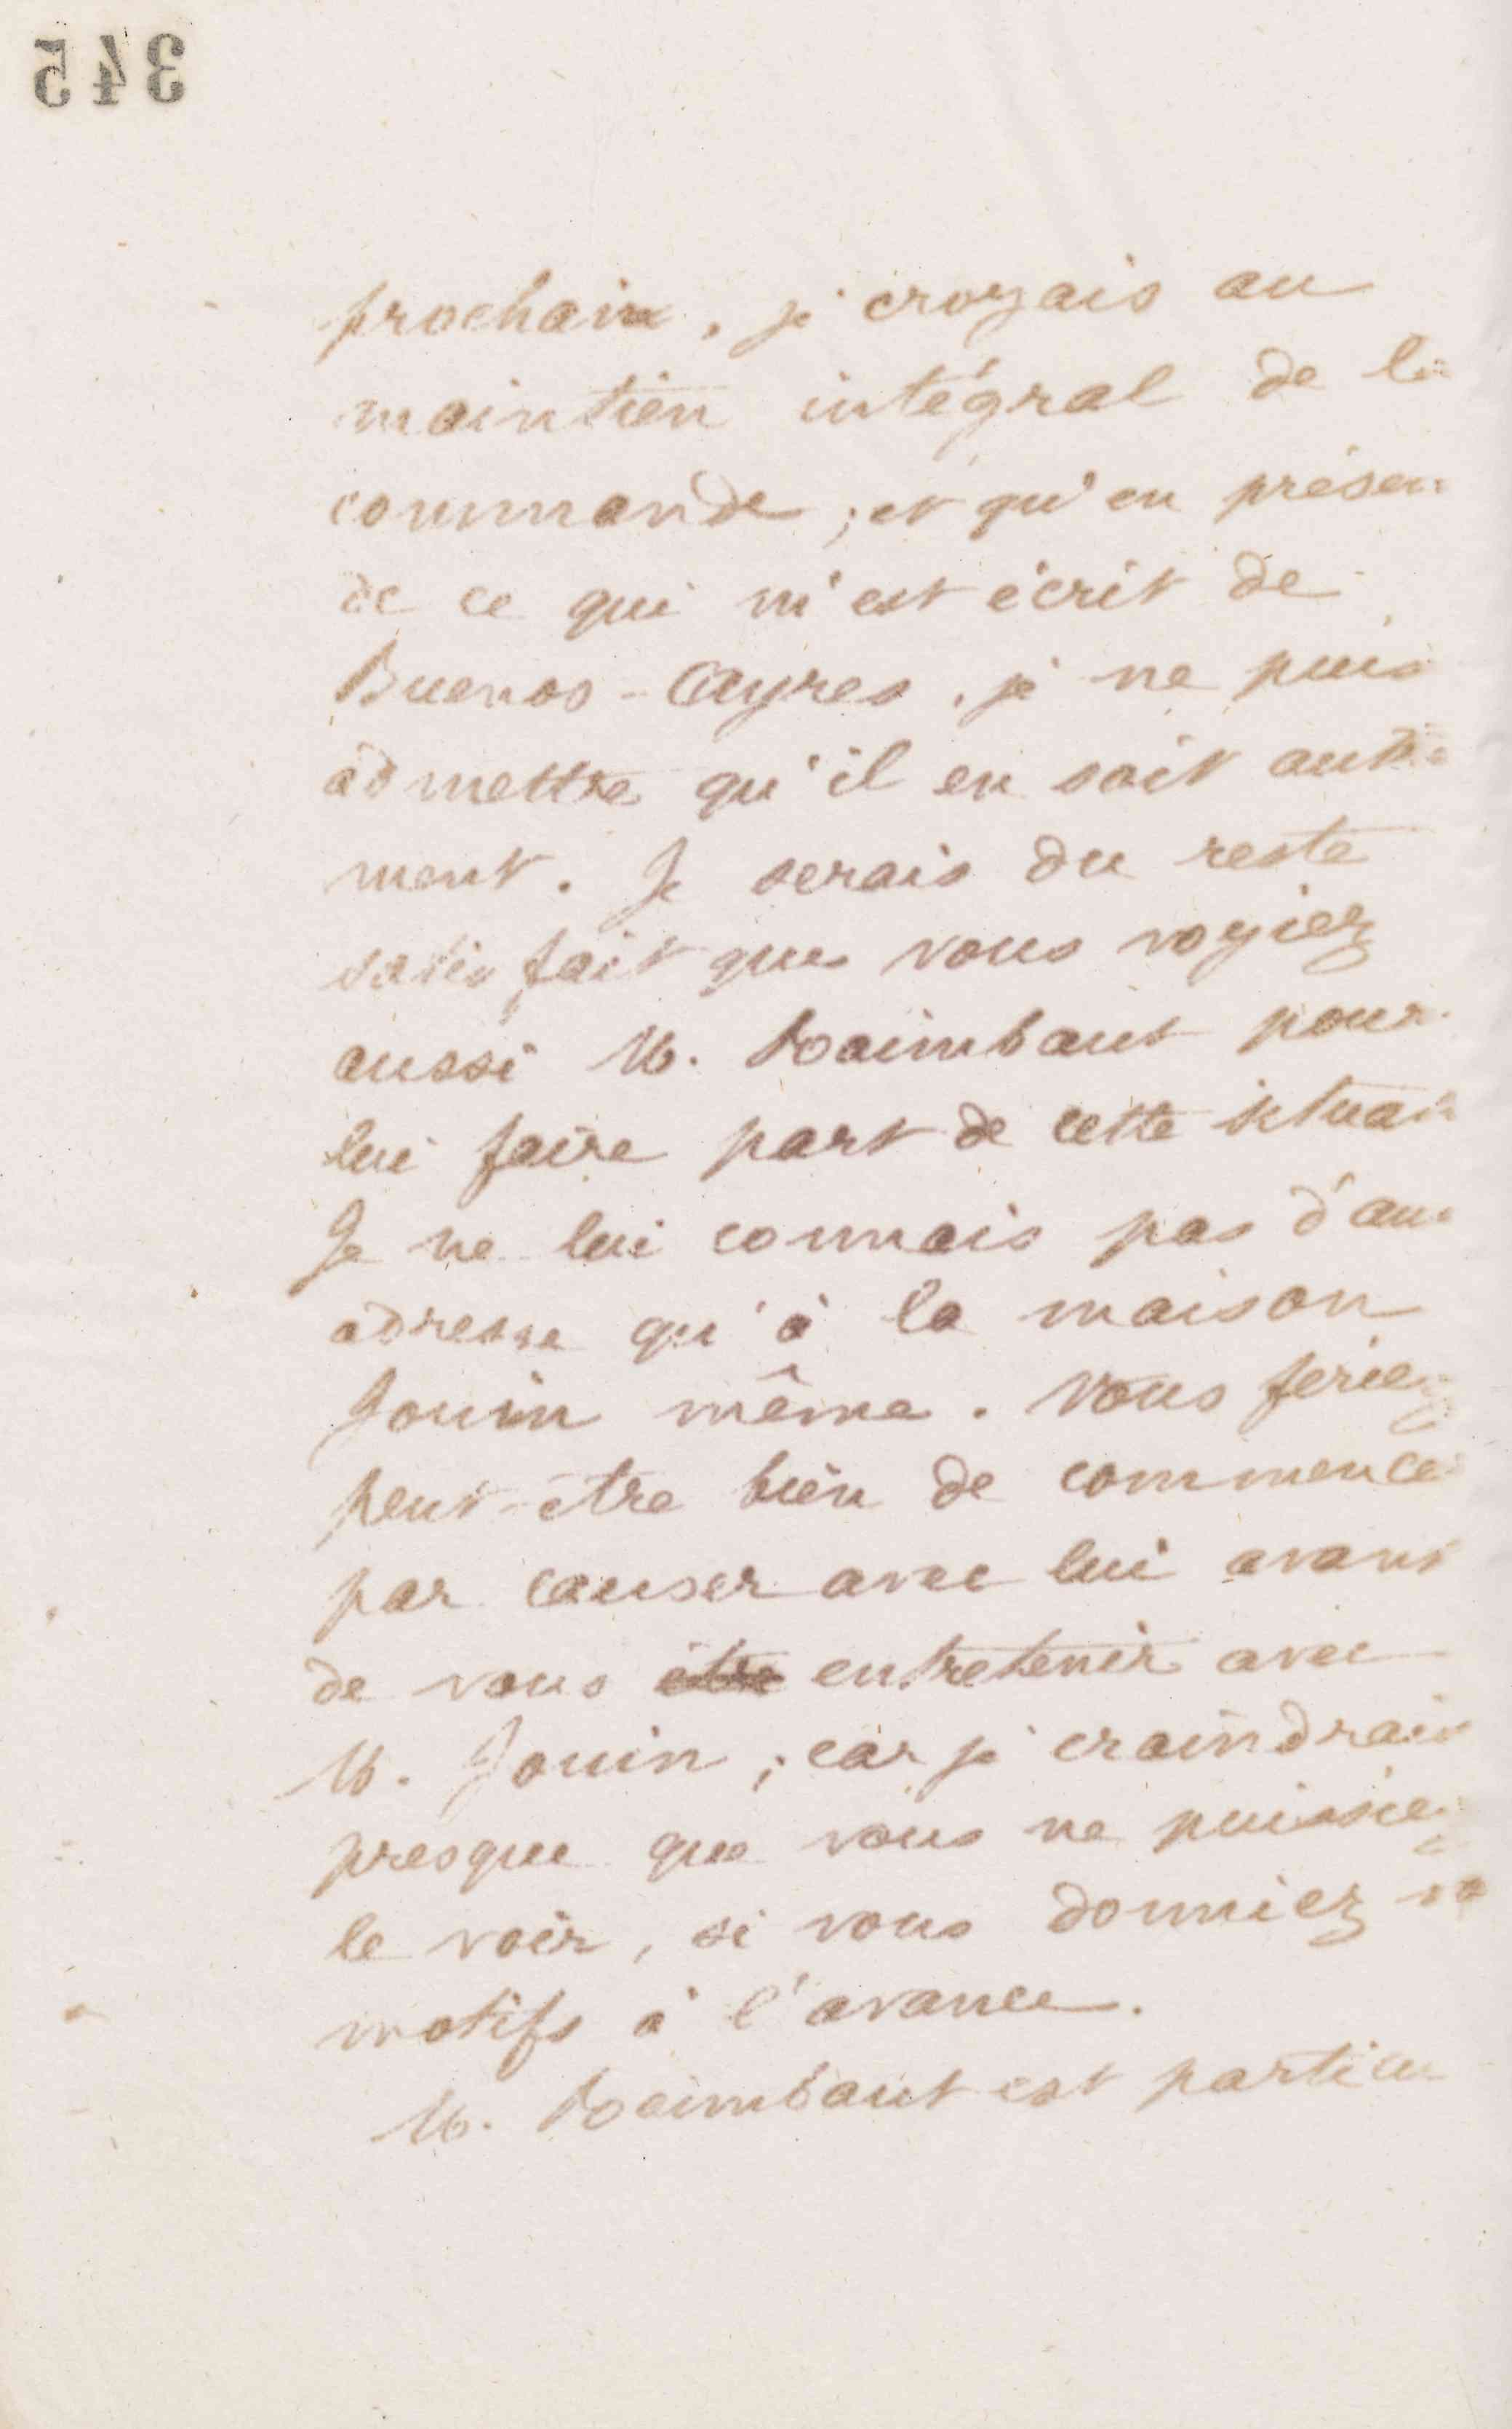 345
prochain, je croyais au
maintien intégral de la
commande ; et qu'en présen
de ce qui m'est écrit de
Buenos-Ayres, je ne puis
admettre qu'il en soit autre
ment. Je serais du reste
satisfait que vous voyiez
aussi M. Raimbaut pour
lui faire part de cette situati
Je ne lui connais pas d'au
adresse qu'à la maison
Jouin même. Vous feriez
peut-être bien de commence
par causer avec lui avant
de vous être entretenir avec
M. Jouin ; car je craindrais
presque que vous ne puissiez
le voir, si vous donniez vo
motifs à l'avance.
M. Raimbaut est parti au